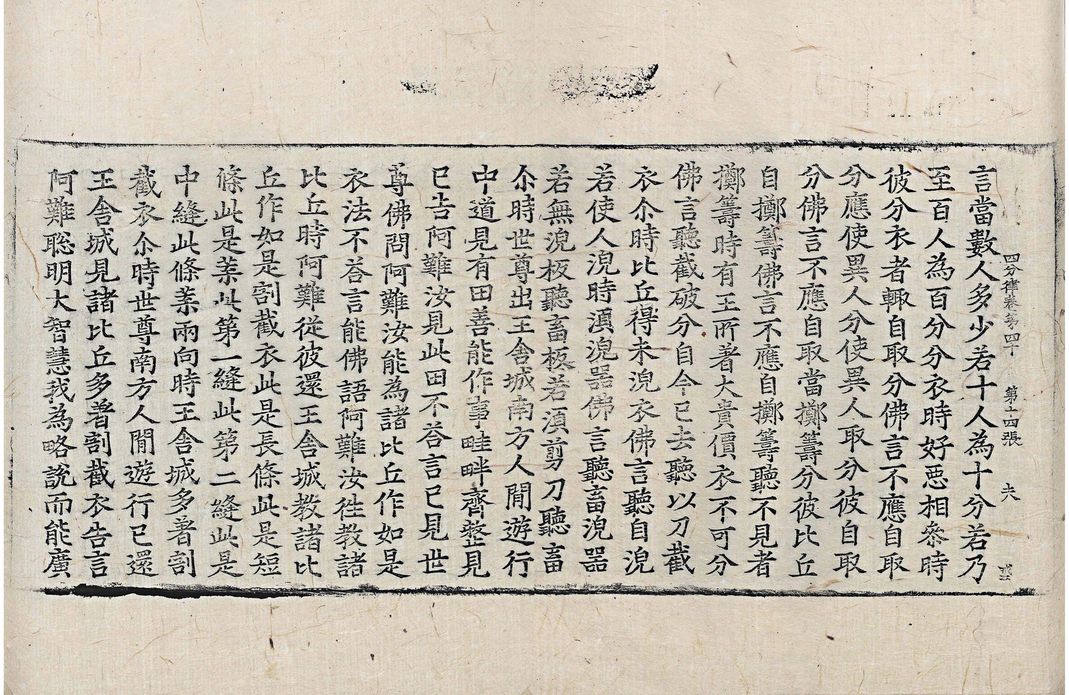 四分律卷第四十 第十四張
言當數人多少若十人為十分若乃
至百人為百分分衣時好惡相叅時
彼分衣者輙自取分佛言不應自取
分應使異人分使異人取分彼自取
分佛言不應自取當擲籌分彼比丘
自擲籌佛言不應自擲籌聽不見者
擲籌時有王所著大貴價衣不可分
佛言聽截破分自今已去聽以刀截
衣尒時比丘得未浣衣佛言聽自浣
若使人浣時湏浣器佛言聽畜浣器
若無浣板聽畜板若湏剪刀聽畜
尒時世尊出王舍城南方人閒遊行
中道見有田善能作事畦畔齊整見
已告阿難汝見此田不荅言已見世
尊佛問阿難汝能為諸比丘作如是
衣法不荅言能佛語阿難汝徃教諸
比丘時阿難從彼還王舍城教諸比
丘作如是割截衣此是長條此是短
條此是葉此第一縫此第二縫此是
中縫此條葉兩向時王舍城多著割
截衣尒時世尊南方人閒遊行已還
王舍城見諸比丘多著割截衣告言
阿難聦明大智慧我為略說而能廣